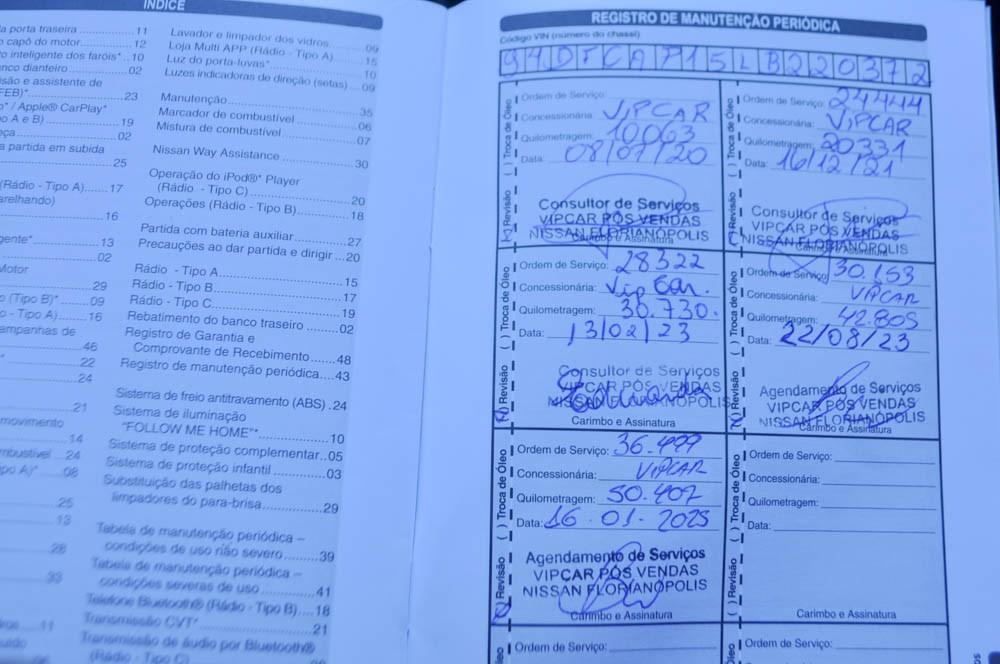 ÍNDICE
a porta traseira 11
o capô do motor 12
o inteligente dos faróis* 10
nco dianteiro 02
são e assistente de
FEB)* 23
o* / Apple® CarPlay*
po A e B) 19
eça 02
a partida em subida
25
(Rádio - Tipo A) 17
arelhando)
16
gente* 13
02
Motor
29
o (Tipo B)* 09
o - Tipo A) 16
ampanhas de
46
22
24
21
movimento
14
mbustível 24
ipo A)* 08
25
13
28
33
11
Lavador e limpador dos vidros 09
Loja Multi APP (Rádio - Tipo A) 15
Luz do porta-luvas* 10
Luzes indicadoras de direção (setas) 09
Manutenção 35
Marcador de combustível 06
Mistura de combustível 07
Nissan Way Assistance 30
Operação do iPod®* Player
(Rádio - Tipo C) 20
Operações (Rádio - Tipo B) 18
Partida com bateria auxiliar 27
Precauções ao dar partida e dirigir 20
Rádio - Tipo A 15
Rádio - Tipo B 17
Rádio - Tipo C 19
Rebatimento do banco traseiro 02
Registro de Garantia e
Comprovante de Recebimento 48
Registro de manutenção periódica 43
Sistema de freio antitravamento (ABS) 24
Sistema de iluminação
"FOLLOW ME HOME"* 10
Sistema de proteção complementar 05
Sistema de proteção infantil 03
Substituição das palhetas dos
limpadores do para-brisa 29
Tabela de manutenção periódica –
condições de uso não severo 39
Tabela de manutenção periódica –
condições severas de uso 41
Telefone Bluetooth® (Rádio - Tipo B) 18
Transmissão CVT* 21
Transmissão de áudio por Bluetooth®
(Rádio - Tipo C)
REGISTRO DE MANUTENÇÃO PERIÓDICA
Código VIN (número do chassi)
94DFCAP15LB220372
( ) Revisão ( ) Troca de Óleo
Ordem de Serviço:
Concessionária: VIPCAR
Quilometragem: 10.063
Data: 08/07/20
Consultor de Serviços
VIPCAR PÓS VENDAS
NISSAN FLORIANÓPOLIS
Carimbo e Assinatura
( ) Revisão ( ) Troca de Óleo
Ordem de Serviço: 24444
Concessionária: VIPCAR
Quilometragem: 20331
Data: 16/12/21
Consultor de Serviços
VIPCAR PÓS VENDAS
NISSAN FLORIANÓPOLIS
Carimbo e Assinatura
( ) Revisão ( ) Troca de Óleo
Ordem de Serviço: 28322
Concessionária: Vip Car.
Quilometragem: 30.730.
Data: 13/02/23
Consultor de Serviços
VIPCAR PÓS VENDAS
NISSAN FLORIANÓPOLIS
Carimbo e Assinatura
( ) Revisão ( ) Troca de Óleo
Ordem de Serviço: 30.153
Concessionária: VIPCAR
Quilometragem: 42.805
Data: 22/08/23
Agendamento de Serviços
VIPCAR PÓS VENDAS
NISSAN FLORIANÓPOLIS
Carimbo e Assinatura
( ) Revisão ( ) Troca de Óleo
Ordem de Serviço: 36.499
Concessionária: VIPCAR
Quilometragem: 50.407
Data: 16.01.2025
Agendamento de Serviços
VIPCAR PÓS VENDAS
NISSAN FLORIANÓPOLIS
Carimbo e Assinatura
( ) Revisão ( ) Troca de Óleo
Ordem de Serviço:
Concessionária:
Quilometragem:
Data:
Carimbo e Assinatura
Ordem de Serviço:
Ordem de Serviço: